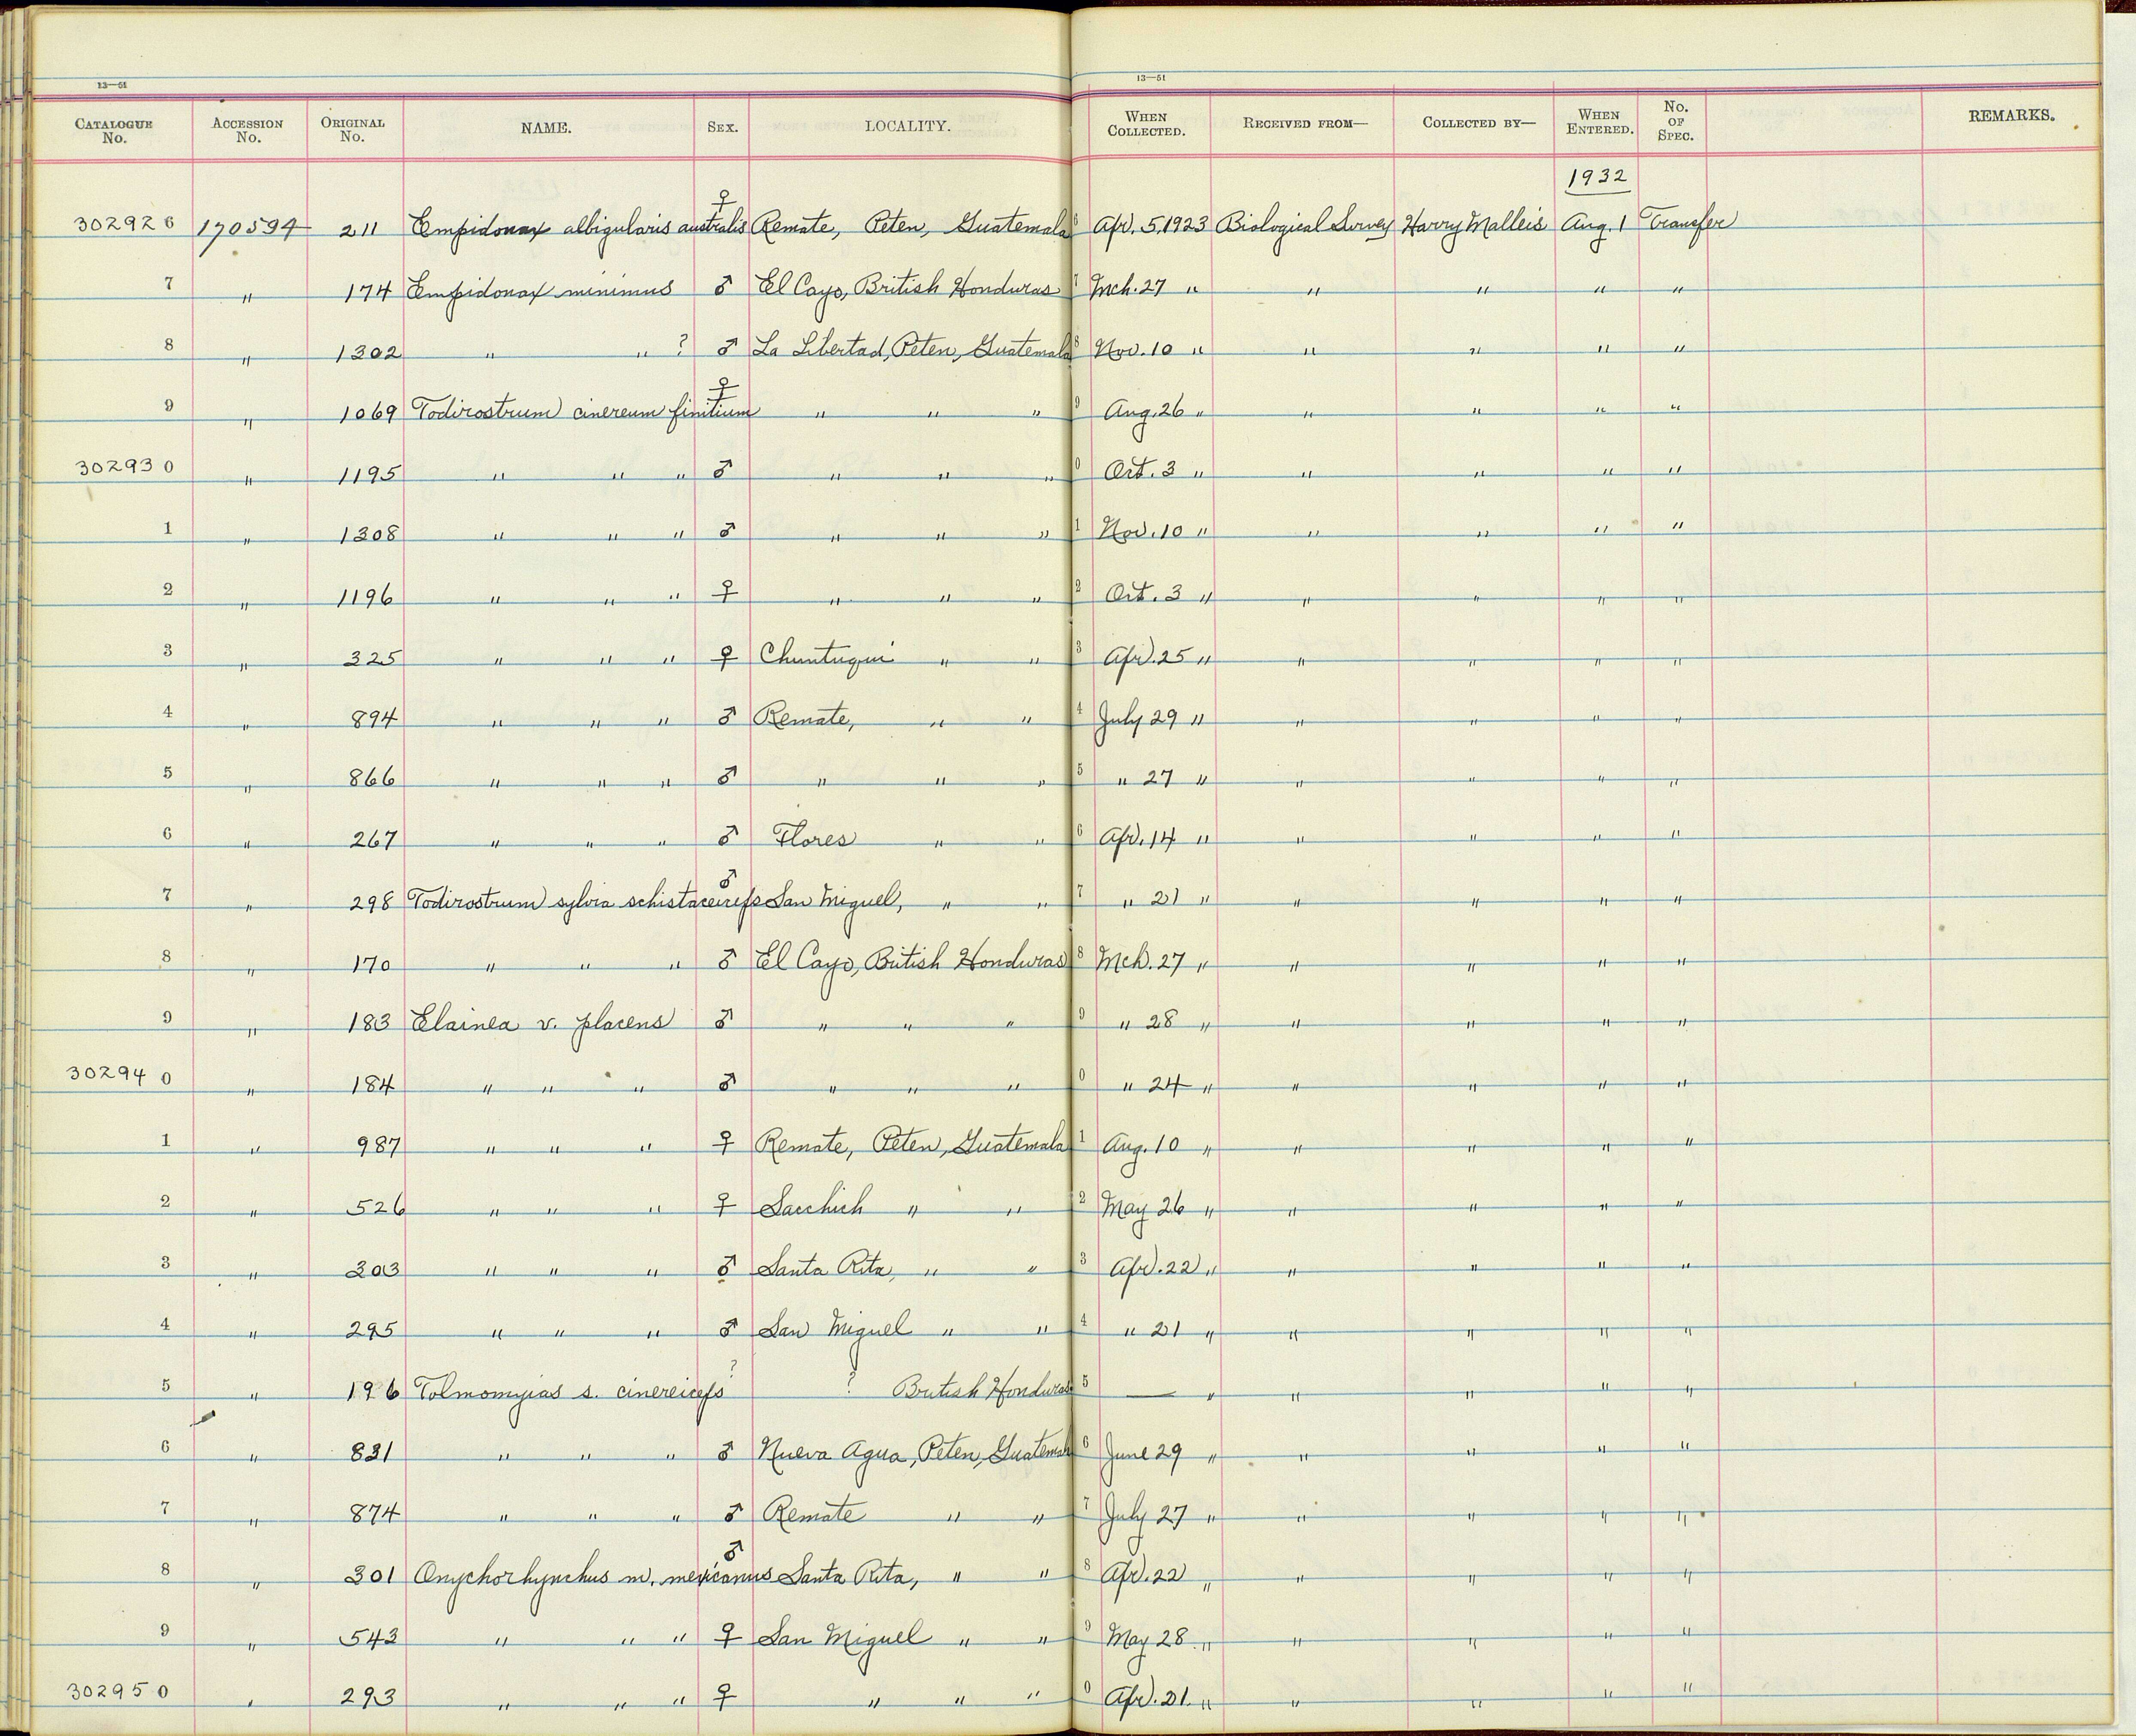 13—51 13—51
CATALOGUE No. ACCESSION No. ORIGINAL No. NAME. SEX. LOCALITY. WHEN COLLECTED. RECEIVED FROM— COLLECTED BY— WHEN ENTERED. No. OF SPEC. REMARKS.
1932
302926 170594 211 Empidonax albigularis australis ♀ Remate, Peten, Guatemala 6 Apr. 5, 1923 Biological Survey Harry Malleis Aug. 1 Transfer
7 " 174 Empidonax minimus ♂ El Cayo, British Honduras 7 Mch. 27 " " " " "
8 " 1302 " " ? ♂ La Libertad, Peten, Guatemala 8 Nov. 10 " " " " "
9 " 1069 Todirostrum cinereum finitium ♀ " " " 9 Aug. 26 " " " " "
302930 " 1195 " " " ♂ " " " 0 Oct. 3 " " " " "
1 " 1308 " " " ♂ " " " 1 Nov. 10 " " " " "
2 " 1196 " " " ♀ " " " 2 Oct. 3 " " " " "
3 " 325 " " " ♀ Chuntuqui " " 3 Apr. 25 " " " " "
4 " 894 " " " ♂ Remate, " " 4 July 29 " " " " "
5 " 866 " " " ♂ " " " 5 " 27 " " " " "
6 " 267 " " " ♂ Flores " " 6 Apr. 14 " " " " "
7 " 298 Todirostrum sylvia schistaceiceps ♂ San Miguel, " " 7 " 21 " " " " "
8 " 170 " " " ♂ El Cayo, British Honduras 8 Mch. 27 " " " " "
9 " 183 Elainea v. placens ♂ " " " 9 " 28 " " " " "
302940 " 184 " " " ♂ " " " 0 " 24 " " " " "
1 " 987 " " " ♀ Remate, Peten, Guatemala 1 Aug. 10 " " " " "
2 " 526 " " " ♀ Sacchich " " 2 May 26 " " " " "
3 " 303 " " " ♂ Santa Rita, " " 3 Apr. 22 " " " " "
4 " 295 " " " ♂ San Miguel " " 4 " 21 " " " " "
5 " 196 Tolmomyias s. cinereiceps ? ? British Honduras 5 — " " " " "
6 " 831 " " " ♂ Nueva Agua, Peten, Guatemala 6 June 29 " " " " "
7 " 874 " " " ♂ Remate " " 7 July 27 " " " " "
8 " 301 Onychorhynchus m. mexicanus ♂ Santa Rita, " " 8 Apr. 22 " " " " "
9 " 543 " " " ♀ San Miguel " " 9 May 28 " " " " "
302950 " 293 " " " ♀ " " " 0 Apr. 21 " " " " "